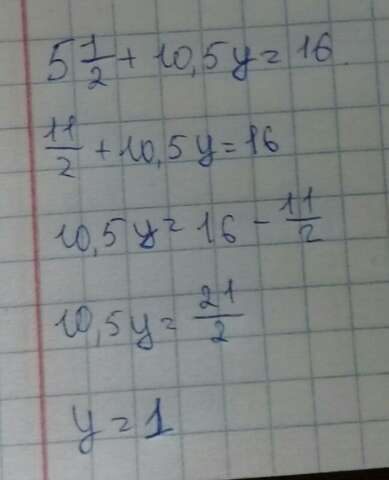 5 1/2 + 10,5y = 16.
11/2 + 10,5y = 16
10,5y = 16 - 11/2
10,5y = 21/2
y = 1